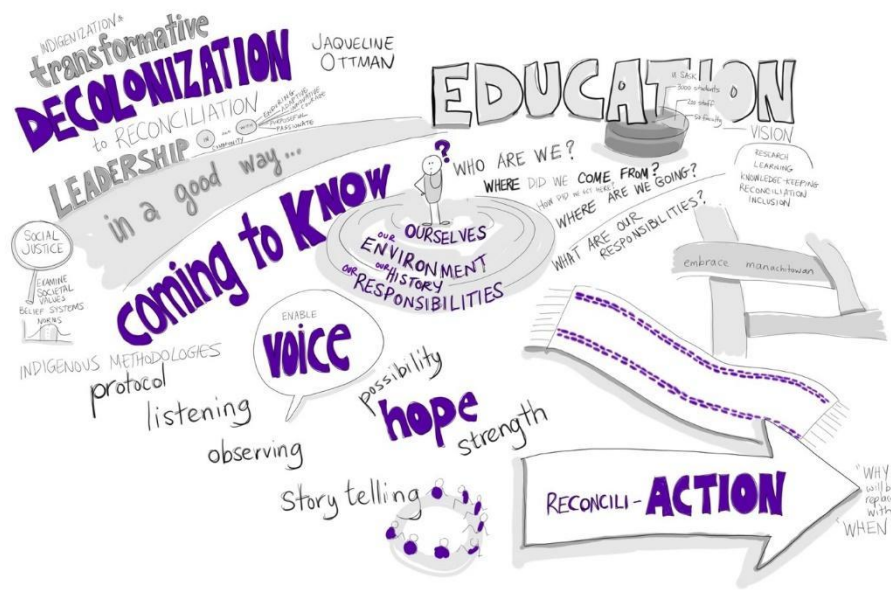 INDIGENIZATION &
transformative
DECOLONIZATION
to RECONCILIATION
JAQUELINE
OTTMAN
LEADERSHIP
IN
COMMUNITY
ENDURING
ADAPTIVE
INNOVATIVE
PURPOSEFUL
PASSIONATE
in a good way...
EDUCATION
U SASK
3000 students
VISION
RESEARCH
LEARNING
KNOWLEDGE-KEEPING
RECONCILIATION
INCLUSION
coming to KNOW
?
OURSELVES
OUR ENVIRONMENT
OUR HISTORY
OUR RESPONSIBILITIES
WHO ARE WE?
WHERE DID WE COME FROM?
HOW DID WE GET HERE?
WHERE ARE WE GOING?
WHAT ARE OUR
RESPONSIBILITIES?
embrace manachitowan
SOCIAL
JUSTICE
EXAMINE
SOCIETAL
VALUES
BELIEF SYSTEMS
NORMS
INDIGENOUS METHODOLOGIES
protocol
listening
observing
story telling
ENABLE
VOICE
possibility
hope
strength
RECONCILI-ACTION
"WHY
will b
replac
with
"WHEN